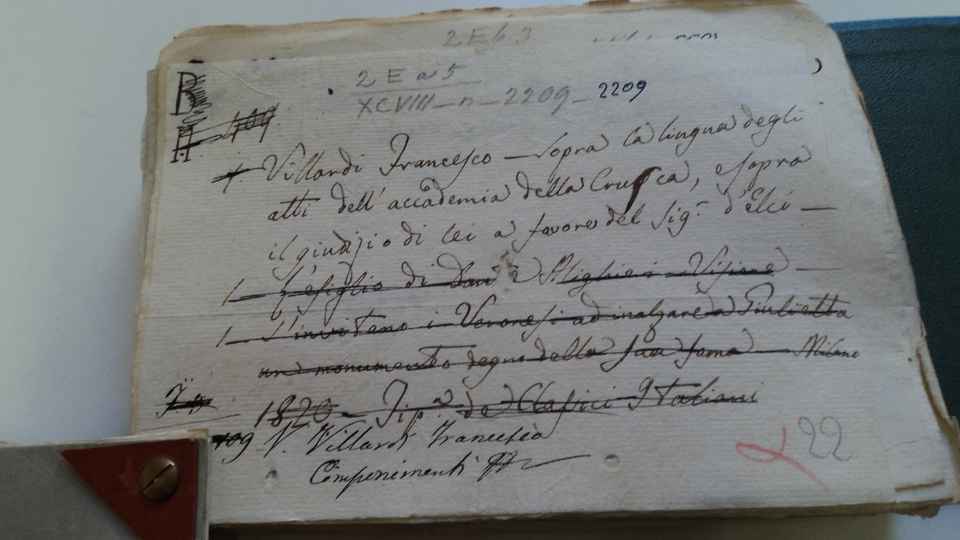 2 E 6 3
2 E a 5
XCVIII - n - 2209 - 2209
B
A 109
Villardi Francesco - sopra la lingua degli
atti dell'accademia della Crusca, e sopra
il giudizio di lei a favore del Sig.r d'Elci -
1 - L'esiglio di Dante Alighieri Visione -
1 - S'invitano i Veronesi ad inalzare a Giulietta
un monumento degno della sua fama - Milano
1820 - Tip.a de Classici Italiani
109 V. Villardi Francesco
Componimenti
22